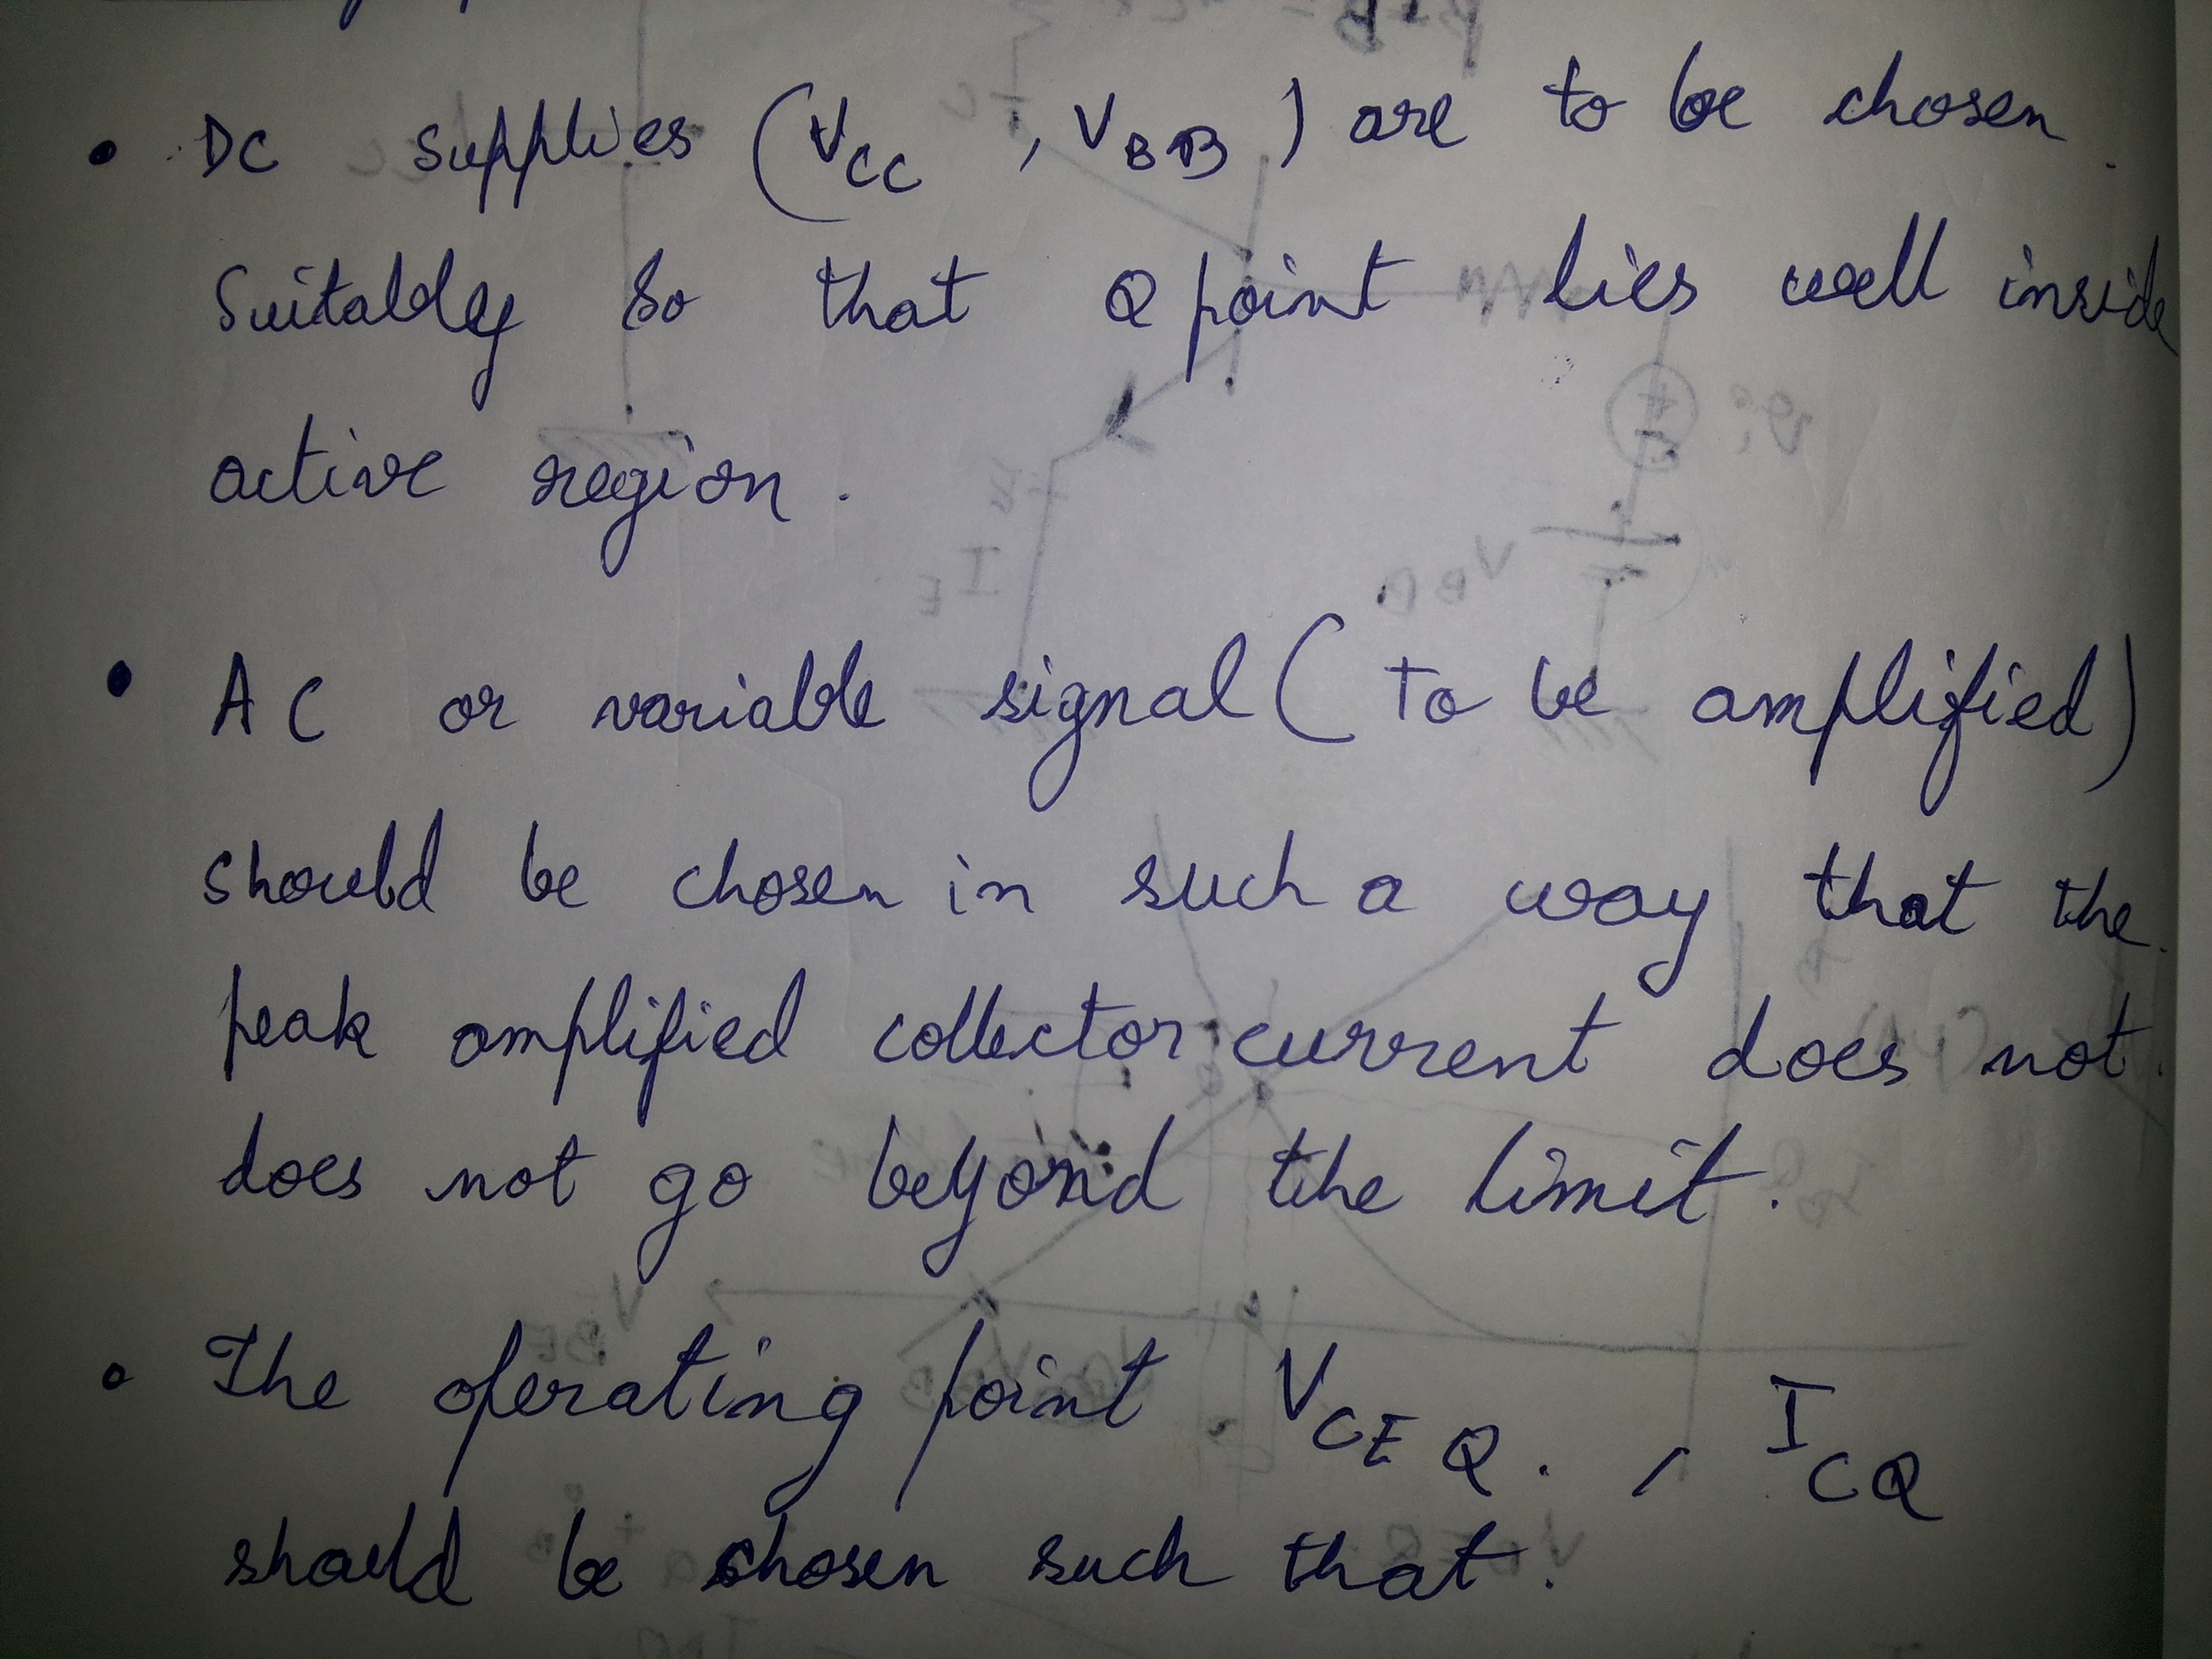 • DC supplies (VCC , VBB) are to be chosen
Suitably so that Q point lies well inside
active region.
• AC or variable signal (to be amplified)
should be chosen in such a way that the
peak amplified collector current does not
does not go beyond the limit.
• The operating point VCEQ , ICQ
should be chosen such that.